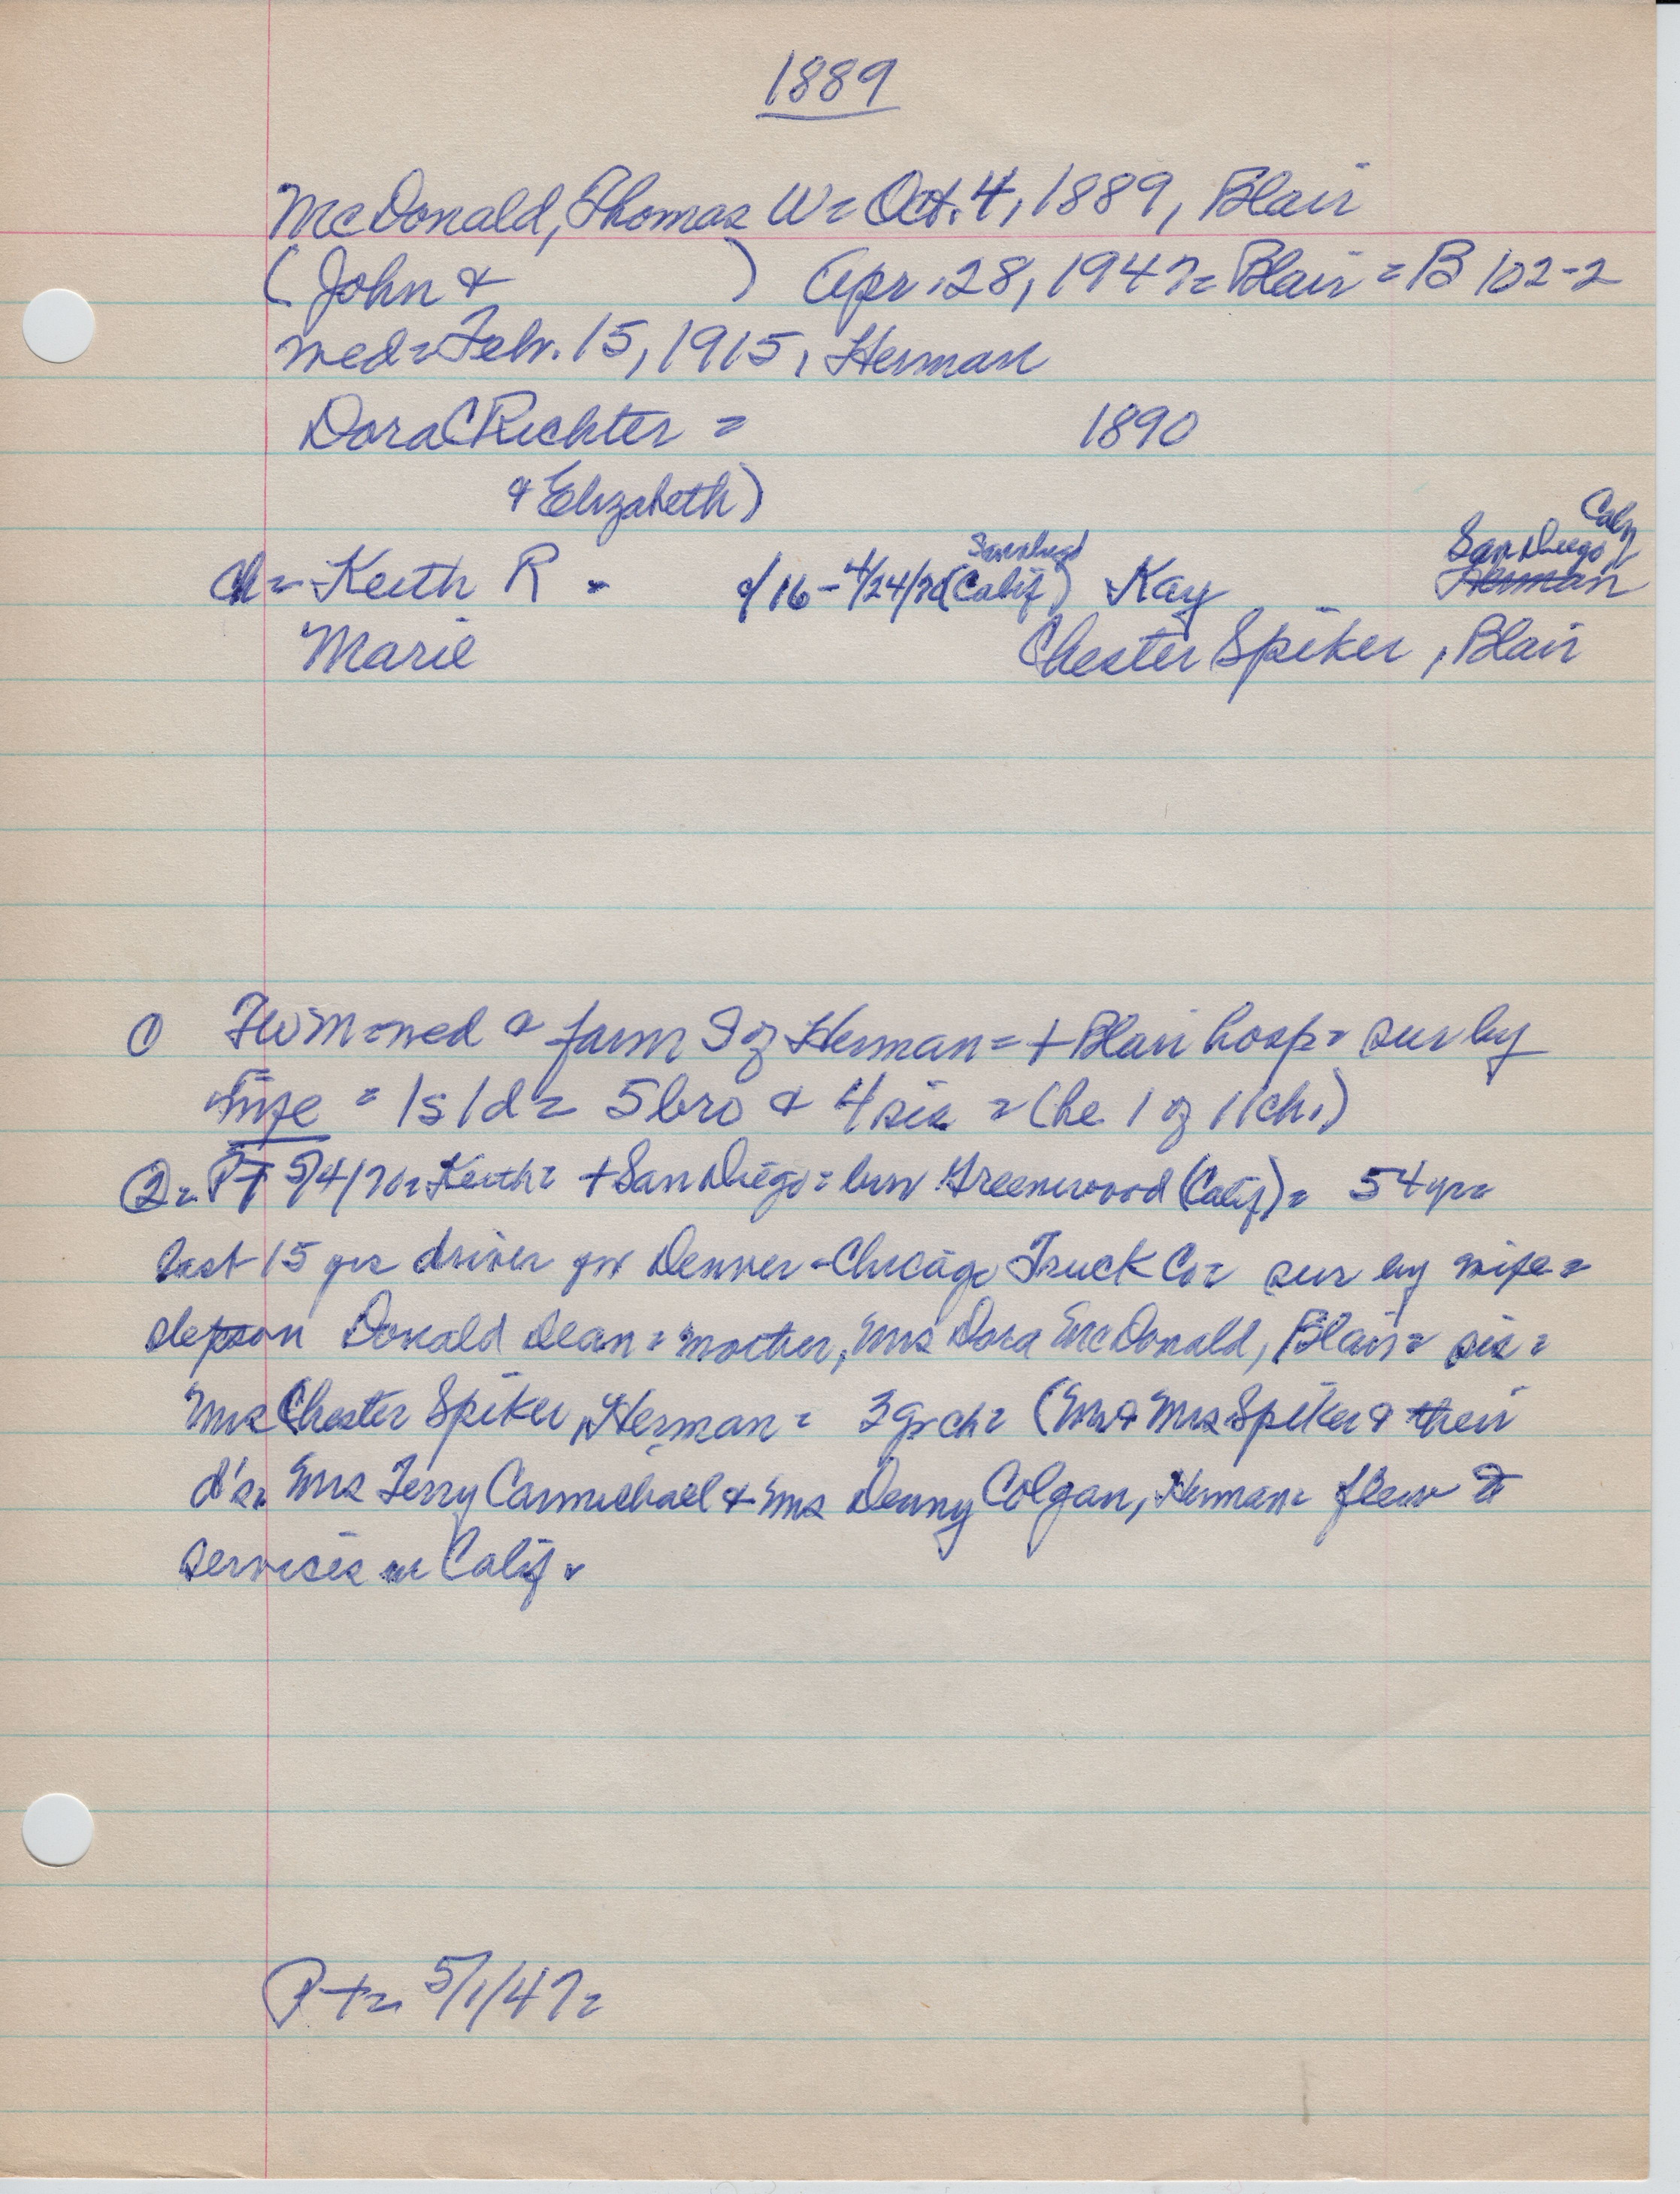 1889
McDonald, Thomas W = Oct. 4, 1889, Blair
(John & ) Apr. 28, 1947 = Blair = B 102-2
med = Febr. 15, 1915, Herman
Dora C Richter = 1890
& Elizabeth)
Calif
San Diego San Diego
ch = Keith R - /16 - 4/24/70 (Calif) Kay Herman
Marie Chester Spiker, Blair
① TWM = med & farm of Herman = + Blair hosp = sur by
wife = 1s 1d = 5 bro & 4 sis = (he 1 of 11 ch.)
② = PT 5/4/70 = Keith = + San Diego = bur Greenwood (Calif) = 54 yrs =
last 15 yrs driver for Denver-Chicago Truck Co = sur by wife =
stepson Donald Dean = mother, Mrs Dora McDonald, Blair = sis =
Mrs Chester Spiker, Herman = 3 gr ch = (Mr & Mrs Spiker & their
d's = Mrs Terry Carmichael & Mrs Denny Colgan, Herman = flew to
services in Calif.
P + = 5/1/47 =